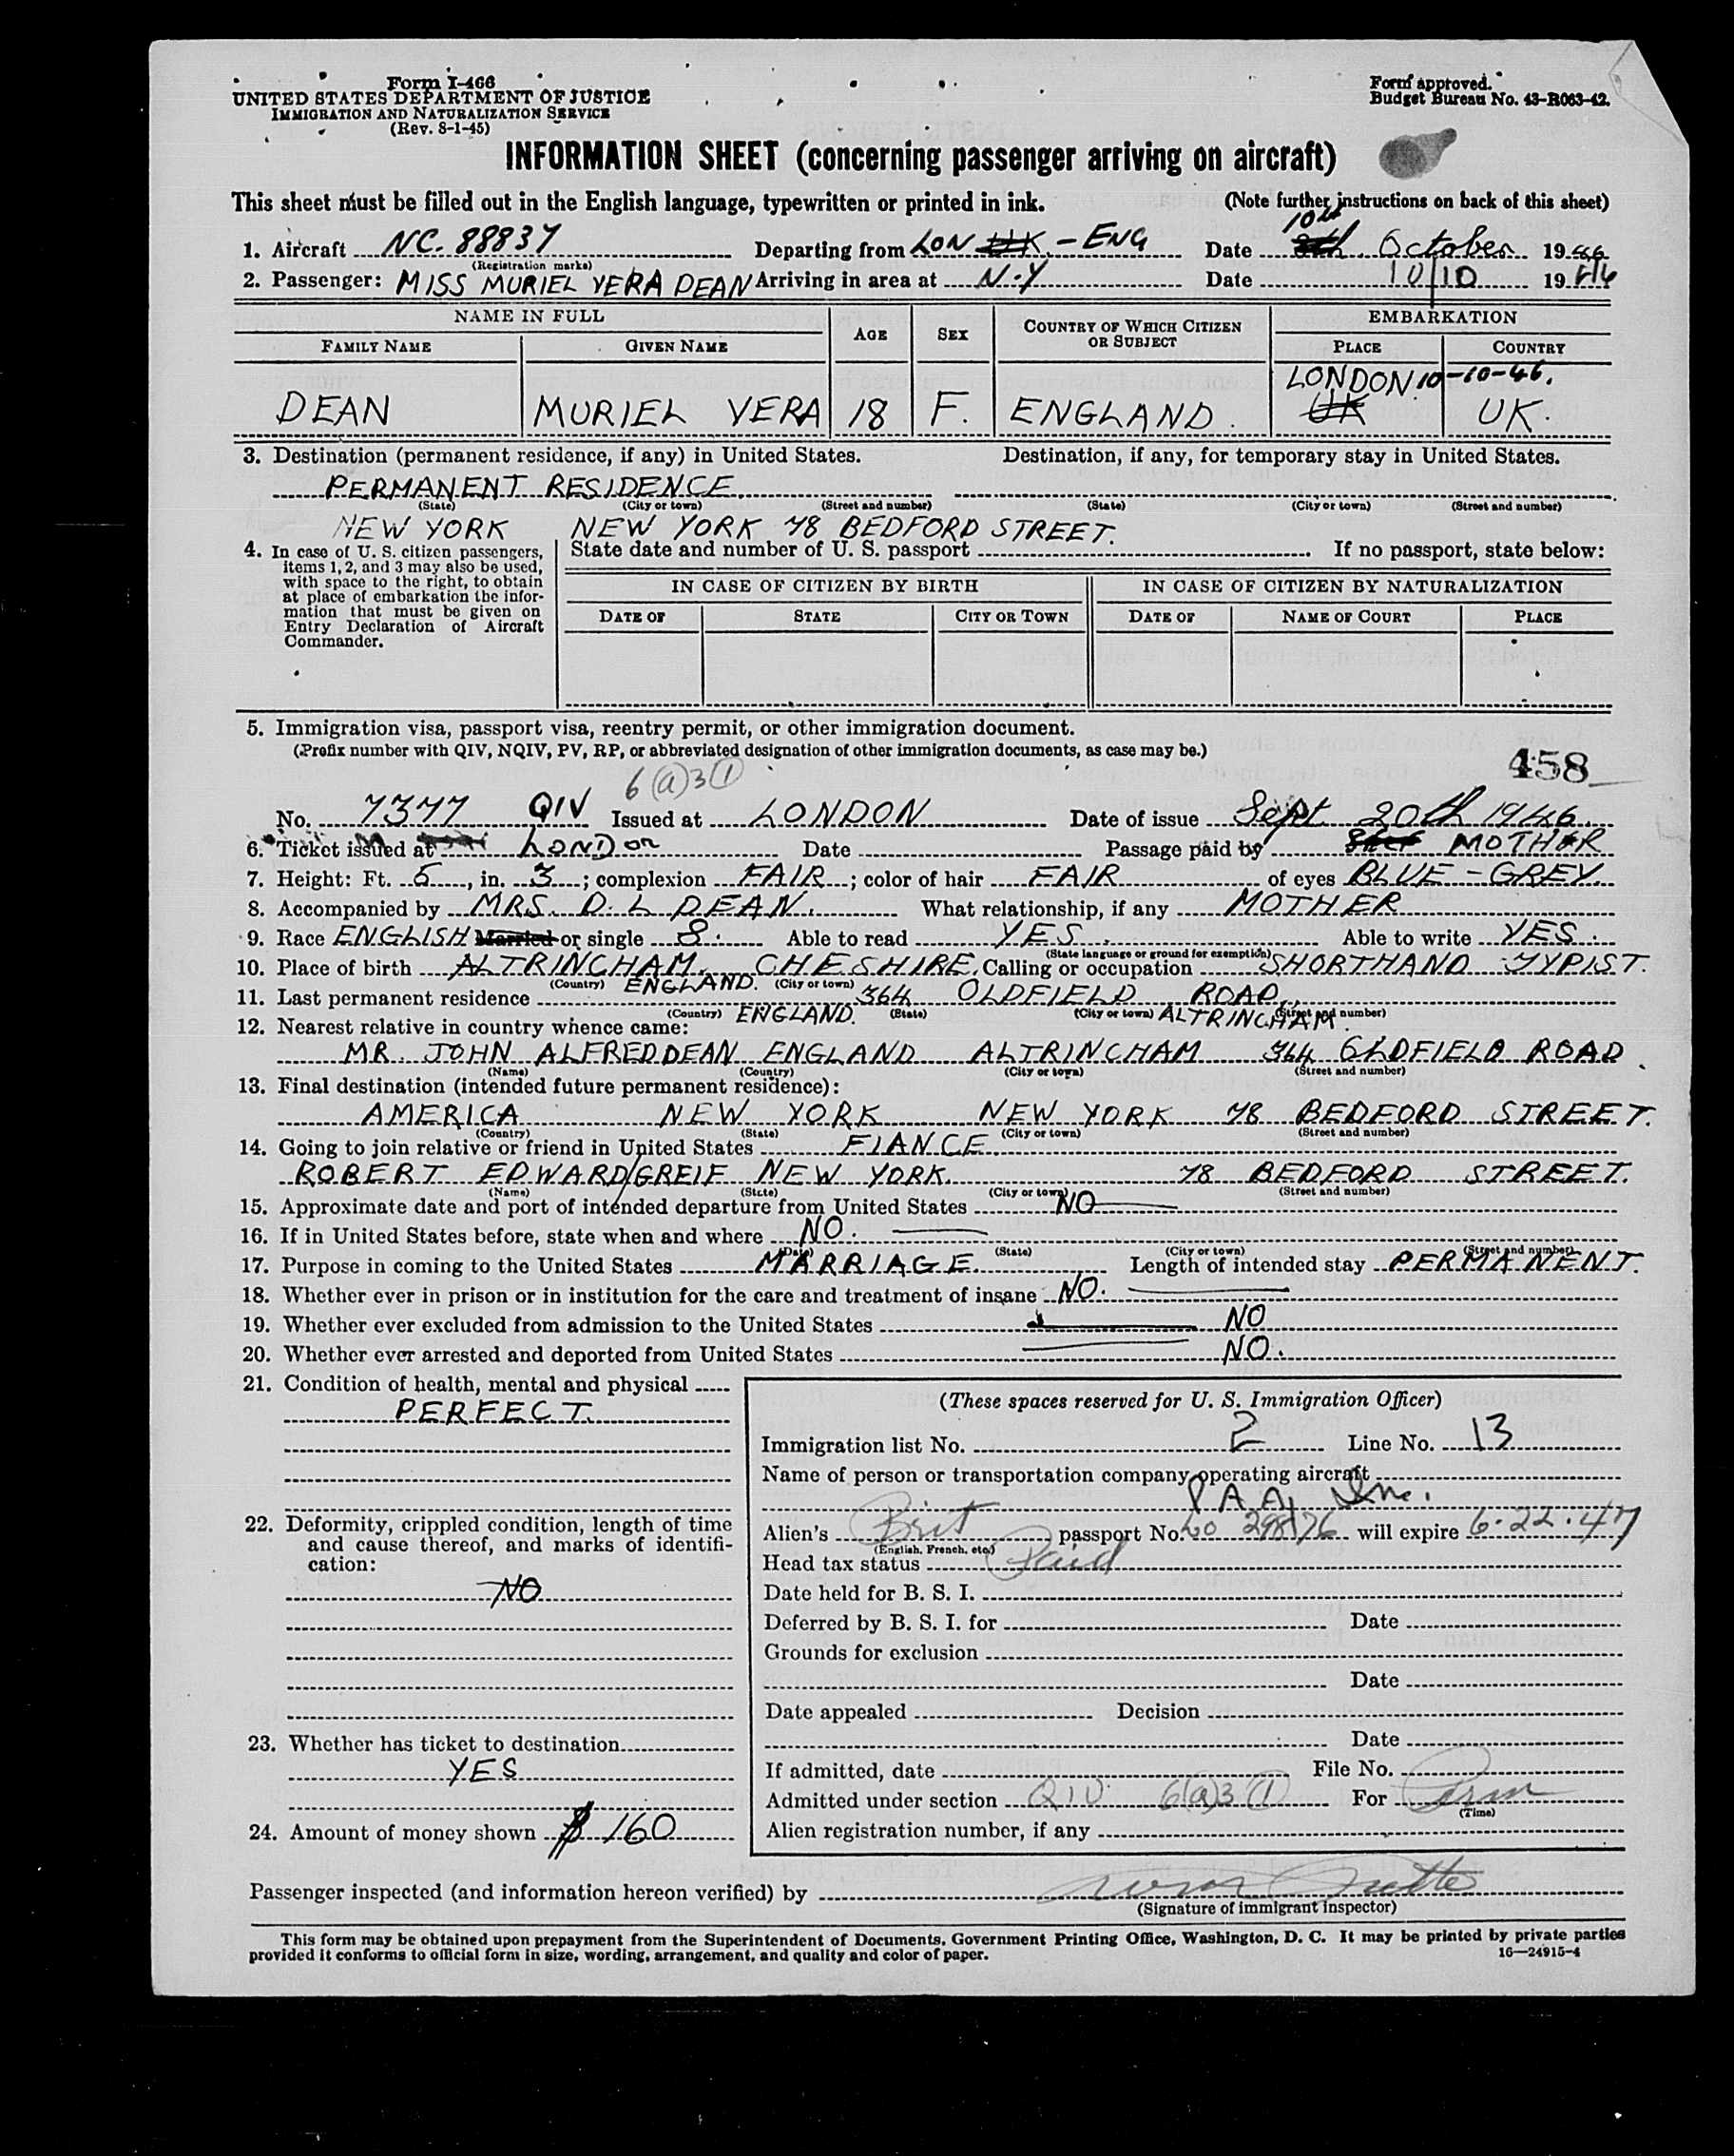 Form I-466
UNITED STATES DEPARTMENT OF JUSTICE
IMMIGRATION AND NATURALIZATION SERVICE
(Rev. 8-1-45)
Form approved.
Budget Bureau No. 43-R063-42.
INFORMATION SHEET (concerning passenger arriving on aircraft)
This sheet must be filled out in the English language, typewritten or printed in ink. (Note further instructions on back of this sheet)
10th
1. Aircraft NC. 88837 Departing from LON UK - ENG Date 8th October 1946
(Registration marks)
2. Passenger: MISS MURIEL VERA DEAN Arriving in area at N.Y Date 10/10 1946
NAME IN FULL AGE SEX COUNTRY OF WHICH CITIZEN OR SUBJECT EMBARKATION
FAMILY NAME GIVEN NAME PLACE COUNTRY
LONDON 10-10-46.
DEAN MURIEL VERA 18 F. ENGLAND. UK UK.
3. Destination (permanent residence, if any) in United States. Destination, if any, for temporary stay in United States.
PERMANENT RESIDENCE
(State) (City or town) (Street and number) (State) (City or town) (Street and number)
NEW YORK NEW YORK 78 BEDFORD STREET.
4. In case of U. S. citizen passengers, items 1, 2, and 3 may also be used, with space to the right, to obtain at place of embarkation the information that must be given on Entry Declaration of Aircraft Commander.
State date and number of U. S. passport If no passport, state below:
IN CASE OF CITIZEN BY BIRTH IN CASE OF CITIZEN BY NATURALIZATION
DATE OF STATE CITY OR TOWN DATE OF NAME OF COURT PLACE
5. Immigration visa, passport visa, reentry permit, or other immigration document.
(Prefix number with QIV, NQIV, PV, RP, or abbreviated designation of other immigration documents, as case may be.)
458
6(a)3(1)
No. 7377 QIV Issued at LONDON Date of issue Sept 20th 1946
6. Ticket issued at LONDON Date Passage paid by MOTHER
7. Height: Ft. 5, in. 3; complexion FAIR; color of hair FAIR of eyes BLUE-GREY.
8. Accompanied by MRS. D. L DEAN. What relationship, if any MOTHER
9. Race ENGLISH Married or single S. Able to read YES. Able to write YES.
(State language or ground for exemption)
10. Place of birth ALTRINCHAM, CHESHIRE. Calling or occupation SHORTHAND TYPIST.
(Country) ENGLAND. (City or town)
11. Last permanent residence 364 OLDFIELD ROAD,
(Country) ENGLAND. (State) (City or town) ALTRINCHAM. (Street and number)
12. Nearest relative in country whence came:
MR. JOHN ALFRED DEAN ENGLAND ALTRINCHAM 364 OLDFIELD ROAD
(Name) (Country) (City or town) (Street and number)
13. Final destination (intended future permanent residence):
AMERICA NEW YORK NEW YORK 78 BEDFORD STREET.
(Country) (State) (City or town) (Street and number)
14. Going to join relative or friend in United States FIANCE
ROBERT EDWARD/GREIF NEW YORK. 78 BEDFORD STREET.
(Name) (State) (City or town) (Street and number)
15. Approximate date and port of intended departure from United States NO
16. If in United States before, state when and where NO.
(Date) (State) (City or town) (Street and number)
17. Purpose in coming to the United States MARRIAGE. Length of intended stay PERMANENT.
18. Whether ever in prison or in institution for the care and treatment of insane NO.
19. Whether ever excluded from admission to the United States NO
20. Whether ever arrested and deported from United States NO.
21. Condition of health, mental and physical
PERFECT.
22. Deformity, crippled condition, length of time and cause thereof, and marks of identification:
NO
23. Whether has ticket to destination
YES
24. Amount of money shown $ 160
(These spaces reserved for U. S. Immigration Officer)
Immigration list No. 2 Line No. 13
Name of person or transportation company operating aircraft
P A A, Inc.
Alien's Brit passport No. 298176 will expire 6.22.47
(English, French, etc.)
Head tax status Paid
Date held for B. S. I.
Deferred by B. S. I. for Date
Grounds for exclusion
Date
Date appealed Decision
Date
If admitted, date File No.
Admitted under section QIV 6(a)3(1) For Perm
(Time)
Alien registration number, if any
Passenger inspected (and information hereon verified) by
(Signature of immigrant inspector)
This form may be obtained upon prepayment from the Superintendent of Documents, Government Printing Office, Washington, D. C. It may be printed by private parties
provided it conforms to official form in size, wording, arrangement, and quality and color of paper. 16—24915-4